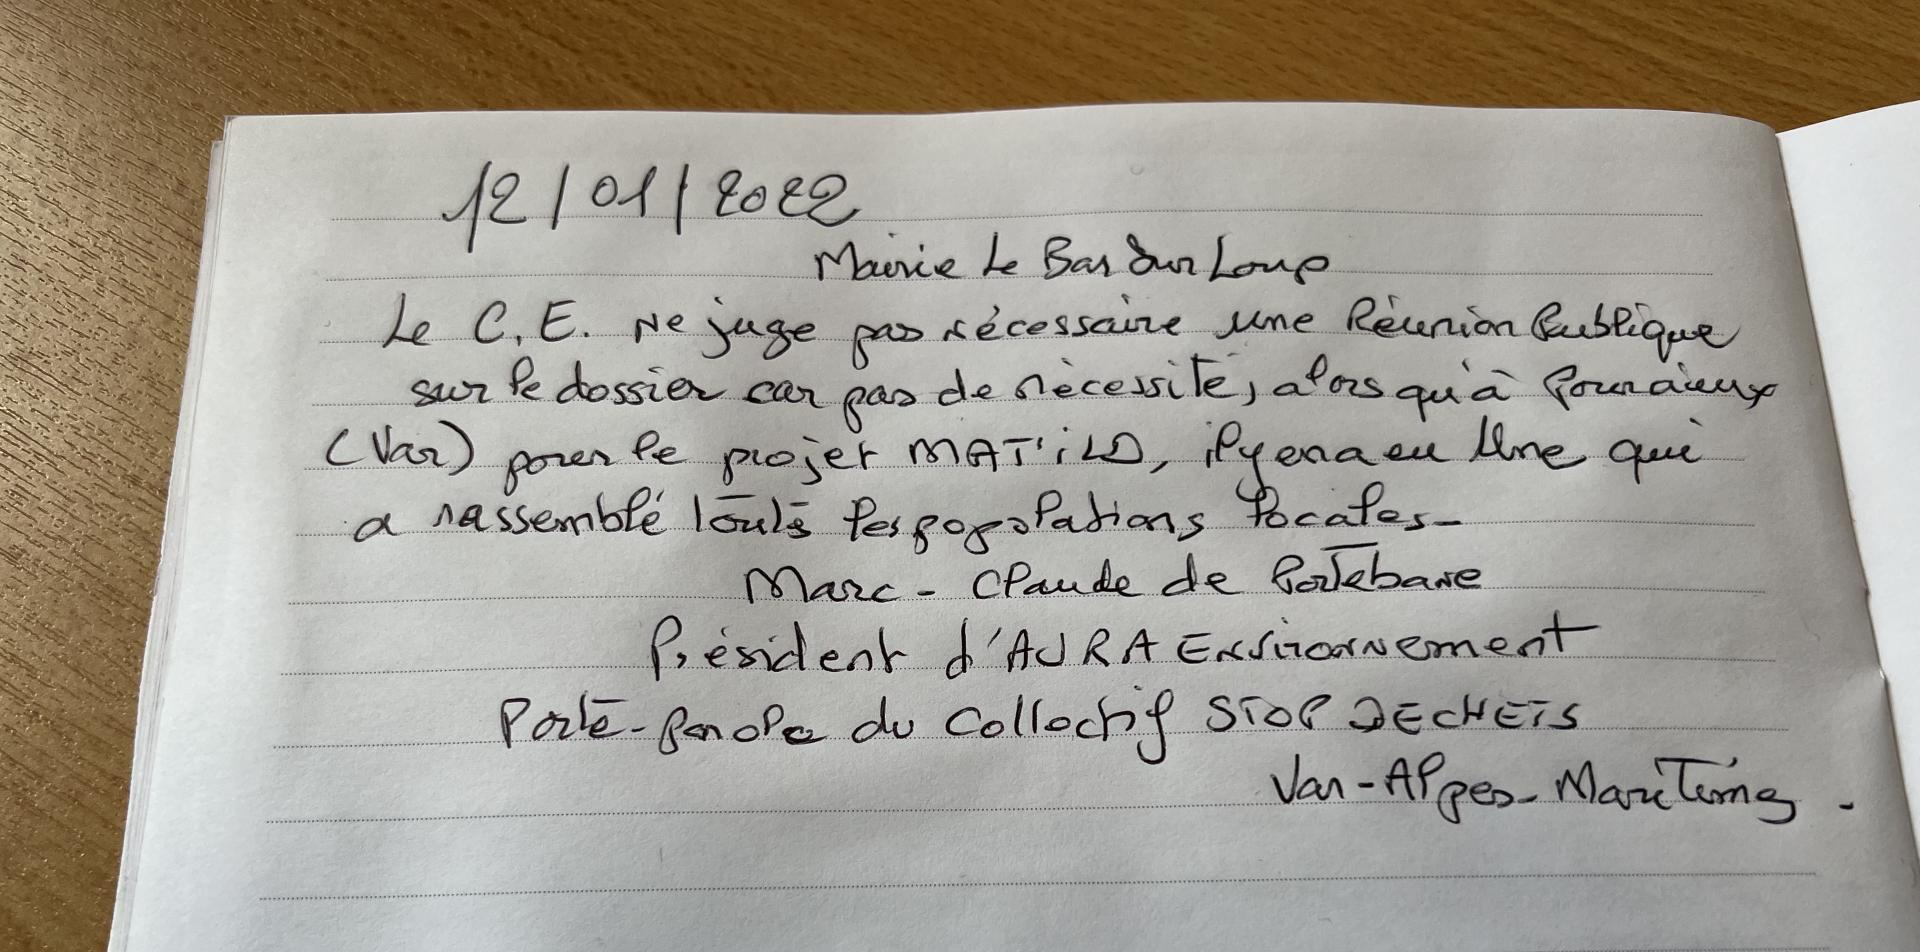 12/01/2022
Mairie Le Bar Sur Loup
Le C.E. Ne juge pas nécessaire une Réunion Publique
sur le dossier car pas de nécessité, alors qu'à Pourrieux
(Var) pour le projet MAT'ILD, il y en a eu Une qui
a rassemblé les populations locales-
Marc-Claude de Portebane
Président d'AURA Environnement
Porte-parole du Collectif STOP DECHETS
Var-Alpes-Maritimes.